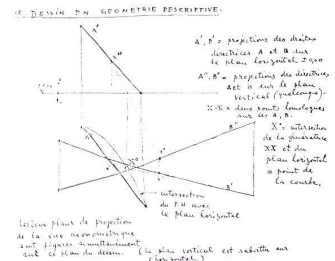 LE DESSIN EN GEOMETRIE DESCRIPTIVE.
A', B' = projections des droites
directrices A et B sur
le plan horizontal
A", B" = projections des directrices
A et B sur le plan
vertical (quelconque).
X-X = deux points homologues
sur les A, B.
X° = intersection
de la génératrice
XX et du
plan horizontal
= point de
la courbe.
intersection
du P.H avec
le plan horizontal
Les deux plans de projection
de la vue axonométrique
sont figurés simultanément
sur ce plan du dessin. (Le plan vertical est rabattu sur
l'horizontal)
A"
B"
A'
B'